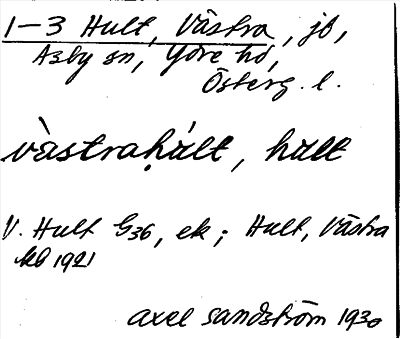 1–3 Hult, Västra, jb,
Asby sn, Ydre hd,
Österg. l.
vàstrahạ́lt, hult
V. Hult G36, ek; Hult, Västra
kb 1921
axel sandström 1930